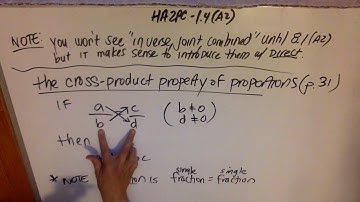 HA2PC - 1.4 (A2)
NOTE: you won't see "inverse, joint, combined" until 8.1 (A2)
but it makes sense to introduce them w/ DIRECT.
the cross-product property of proportions (p. 31)
IF a c ( b ≠ 0
b d d ≠ 0 )
then
c
* NOTE is single fraction = single fraction